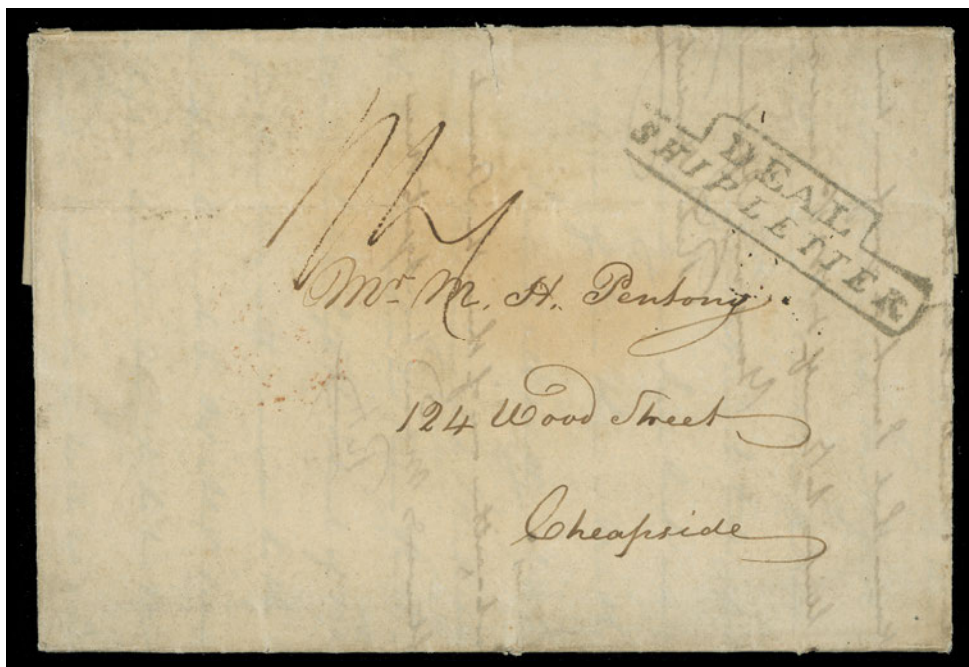 DEAL
SHIP LETTER
Mr M. H. Pentony
124 Wood Street
Cheapside